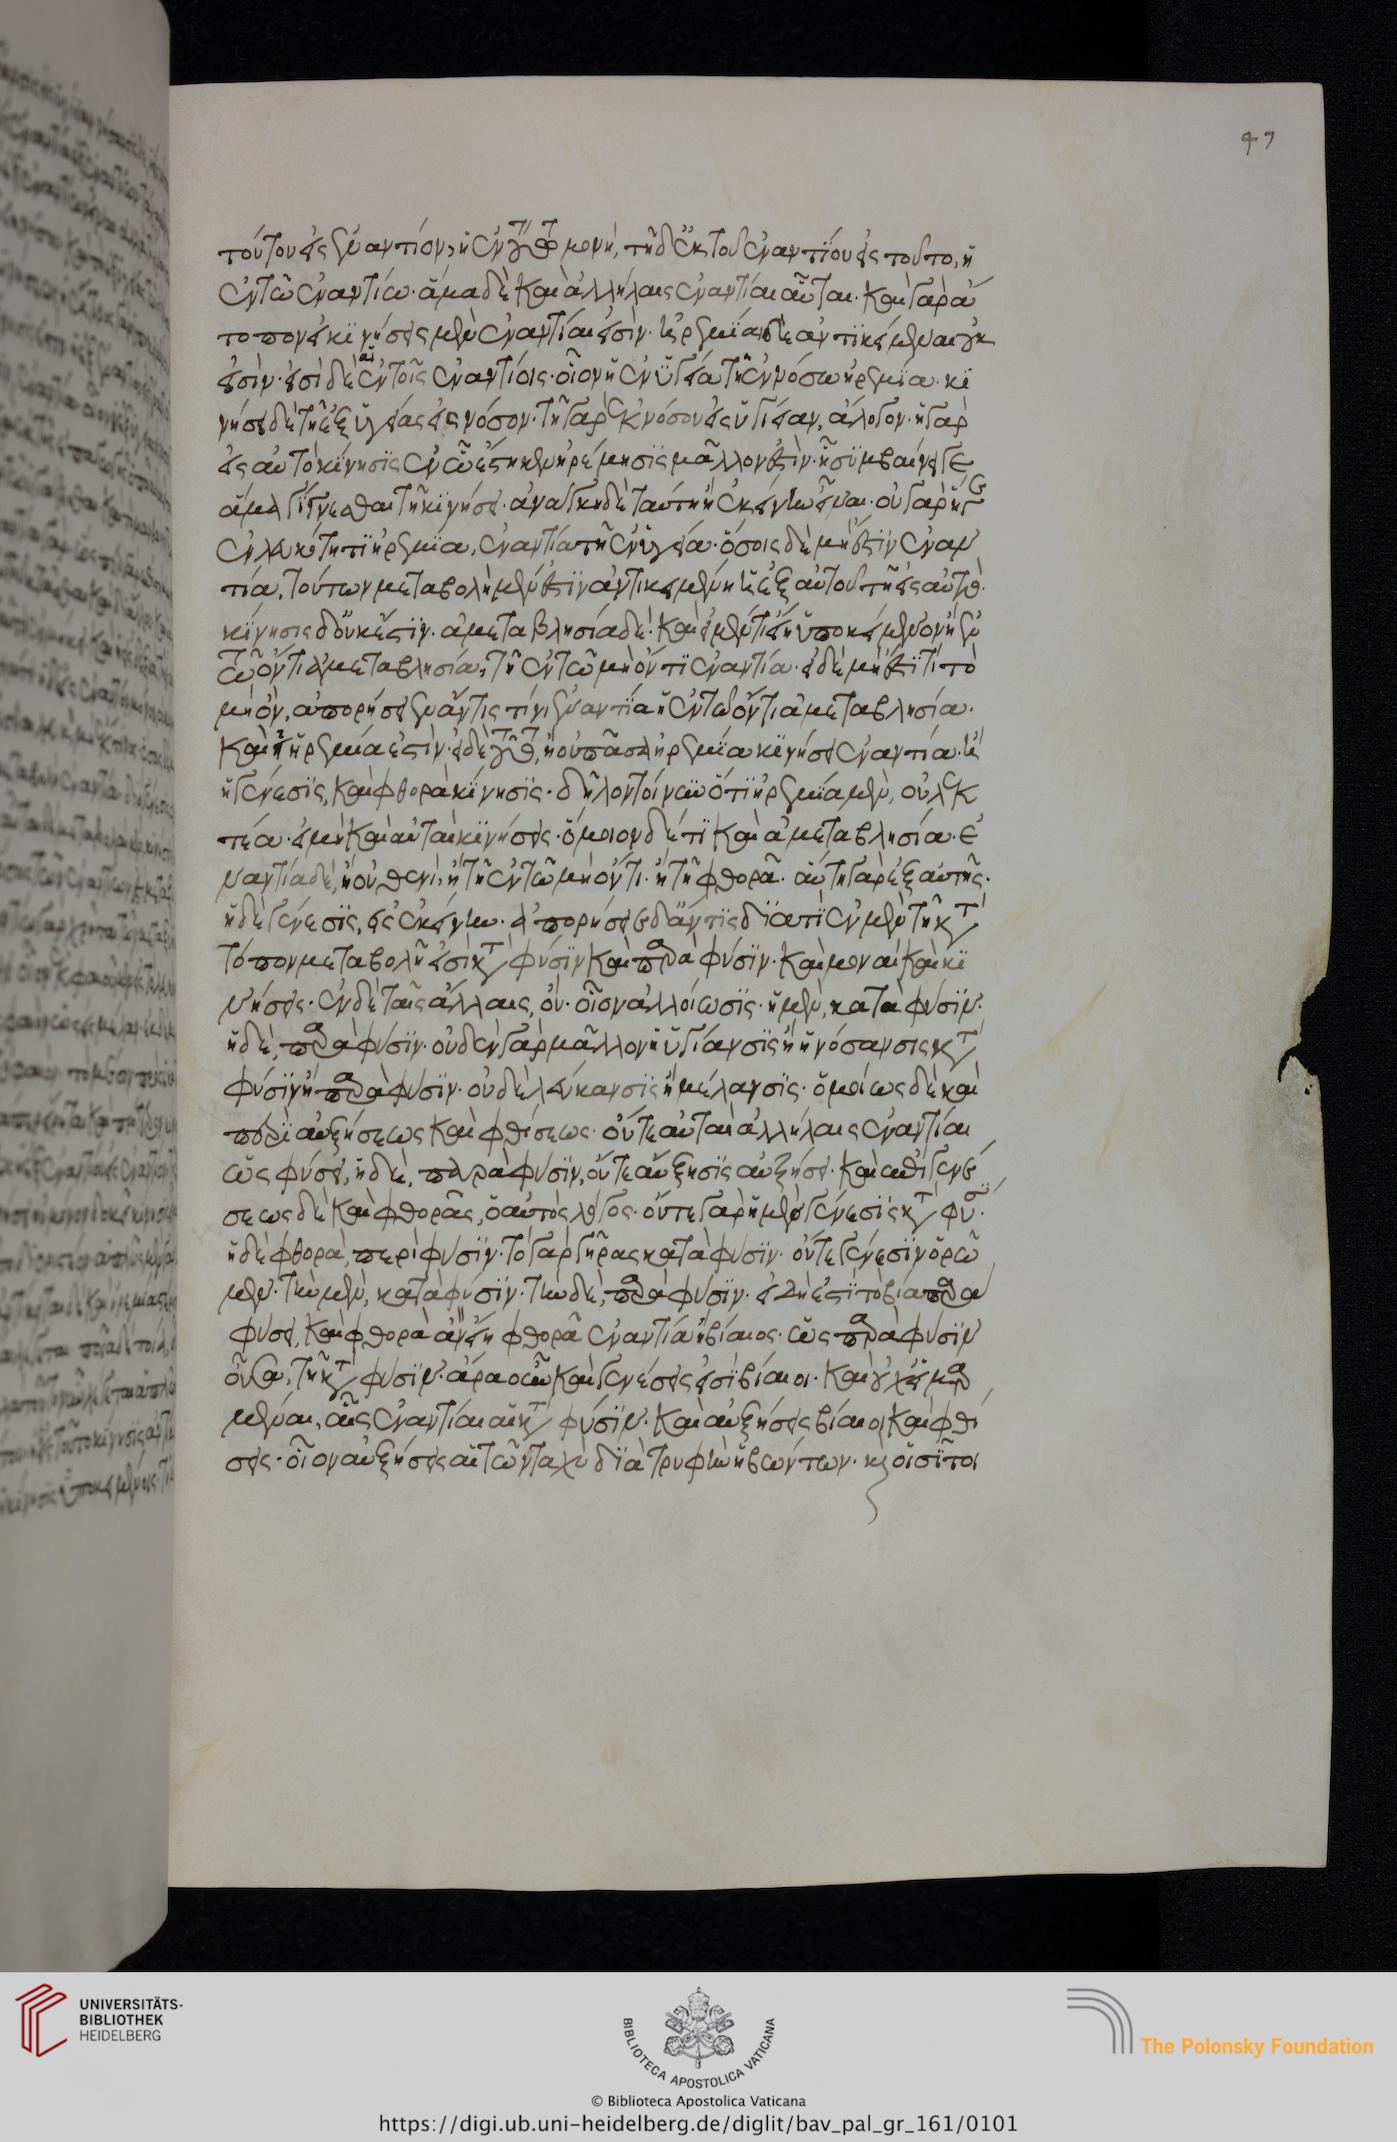 τούτου εἰς ἐναντίον, ἡ ἐν τούτῳ μονή, τῆ δ' ἐκ τοῦ ἐναντίου εἰς τοῦτο, ἡ
ἐν τῶ ἐναντίω· ἅμα δὲ καὶ ἀλλήλαις ἐναντίαι αὗται· καὶ γὰρ ἄ
τοπον εἰ κινήσεις μὲν ἐναντίαι εἰσὶν· ἠρεμίαι δὲ ἀντικείμεναι οὐκ
εἰσὶν· εἰσὶ δὲ αἱ ἐν τοῖς ἐναντίοις· οἷον ἡ ἐν ὑγιεία τῆ ἐν νόσω ἠρεμία· κι
νήσει δὲ τῆ ἐξ ὑγιείας εἰς νόσον· τῆ γὰρ ἐκ νόσου εἰς ὑγίειαν, ἄλογον· ἡ γὰρ
εἰς αὐτὸ κίνησις ἐν ὧ ἕστηκεν ἠρέμησις μᾶλλον ἐστὶν· ἧ συμβαίνει γε
ἅμα γίγνεσθαι τῆ κινήσει· ἀνάγκη δὲ ταύτην ἢ ἐκείνην εἶναι· οὐ γὰρ ἥ γε
ἐν λευκότητι ἠρεμία, ἐναντία τῆ ἐν ὑγιεία· ὅσοις δὲ μὴ ἔστιν ἐναν
τία, τούτων μεταβολὴ μέν ἐστιν ἀντικειμένη ἡ ἐξ αὐτοῦ τῆ εἰς αὐτό·
κίνησις δ' οὐκ ἔστιν· ἀμεταβλησία δέ· καὶ εἰ μέν τι εἴη ὑποκείμενον ἡ ἐν
τῶ ὄντι ἀμεταβλησία, τῆ ἐν τῶ μὴ ὄντι ἐναντία· εἰ δὲ μὴ ἔστι τί τὸ
μὴ ὄν, ἀπορήσειεν ἄν τις τίνι ἐναντία ἡ ἐν τῶ ὄντι ἀμεταβλησία·
καὶ εἰ ἠρεμία ἐστὶν· εἰ δὲ τοῦτο, ἢ οὐ πᾶσα ἠρεμία κινήσει ἐναντία· ἢ
ἡ γένεσις, καὶ φθορὰ κίνησις· δῆλον τοίνυν ὅτι ἠρεμία μὲν, οὐ λεκ
τέα· εἰ μὴ καὶ αὗται κινήσεις· ὅμοιον δέ τι καὶ ἀμεταβλησία· ἐ
ναντία δὲ, ἢ οὐθενὶ, ἢ τῆ ἐν τῶ μὴ ὄντι· ἢ τῆ φθορᾶ· αὕτη γὰρ ἐξ αὐτῆς·
ἡ δὲ γένεσις, εἰς ἐκείνην· ἀπορήσειε δ' ἄν τις διατί ἐν μὲν τῆ κατὰ
τόπον μεταβολῆ εἰσὶ κατὰ φύσιν καὶ παρὰ φύσιν· καὶ μοναὶ καὶ κι
νήσεις· ἐν δὲ ταῖς ἄλλαις, οὔ· οἷον ἀλλοίωσις· ἡ μὲν, κατὰ φύσιν·
ἡ δὲ, παρὰ φύσιν· οὐδὲν γὰρ μᾶλλον ἡ ὑγίανσις ἢ ἡ νόσανσις κατὰ
φύσιν ἢ παρὰ φύσιν· οὐδὲ λεύκανσις ἢ μέλανσις· ὁμοίως δὲ καὶ
περὶ αὐξήσεως καὶ φθίσεως· οὔτε αὗται ἀλλήλαις ἐναντίαι
ὡς φύσει, ἡ δὲ, παρὰ φύσιν, οὔτε αὔξησις αὐξήσει· καὶ ἐπὶ γενέ
σεως δὲ καὶ φθορᾶς, ὁ αὐτὸς λόγος· οὔτε γὰρ ἡ μὲν γένεσις κατὰ φύσιν·
ἡ δὲ φθορὰ, περὶ φύσιν· τὸ γὰρ γῆρας κατὰ φύσιν· οὔτε γένεσιν ὁρῶ
μεν· τὴν μὲν, κατὰ φύσιν· τὴν δὲ, παρὰ φύσιν· εἰ δή ἐστι τὸ βία παρὰ
φύσιν, καὶ φθορὰ ἂν εἴη φθορᾶ ἐναντία ἡ βίαιος· ὡς παρὰ φύσιν
οὖσα, τῆ κατὰ φύσιν· ἆρα οὖν καὶ γενέσεις εἰσὶ βίαιοι· καὶ οὐχ εἱμαρ
μέναι, αἷς ἐναντίαι αἱ κατὰ φύσιν· καὶ αὐξήσεις βίαιοι καὶ φθί
σεις· οἷον αὐξήσεις αἱ τῶν ταχὺ διὰ τρυφὴν ἡβώντων· καὶ οἱ σῖτοι
97
UNIVERSITÄTS-
BIBLIOTHEK
HEIDELBERG
BIBLIOTECA APOSTOLICA VATICANA
The Polonsky Foundation
© Biblioteca Apostolica Vaticana
https://digi.ub.uni-heidelberg.de/diglit/bav_pal_gr_161/0101